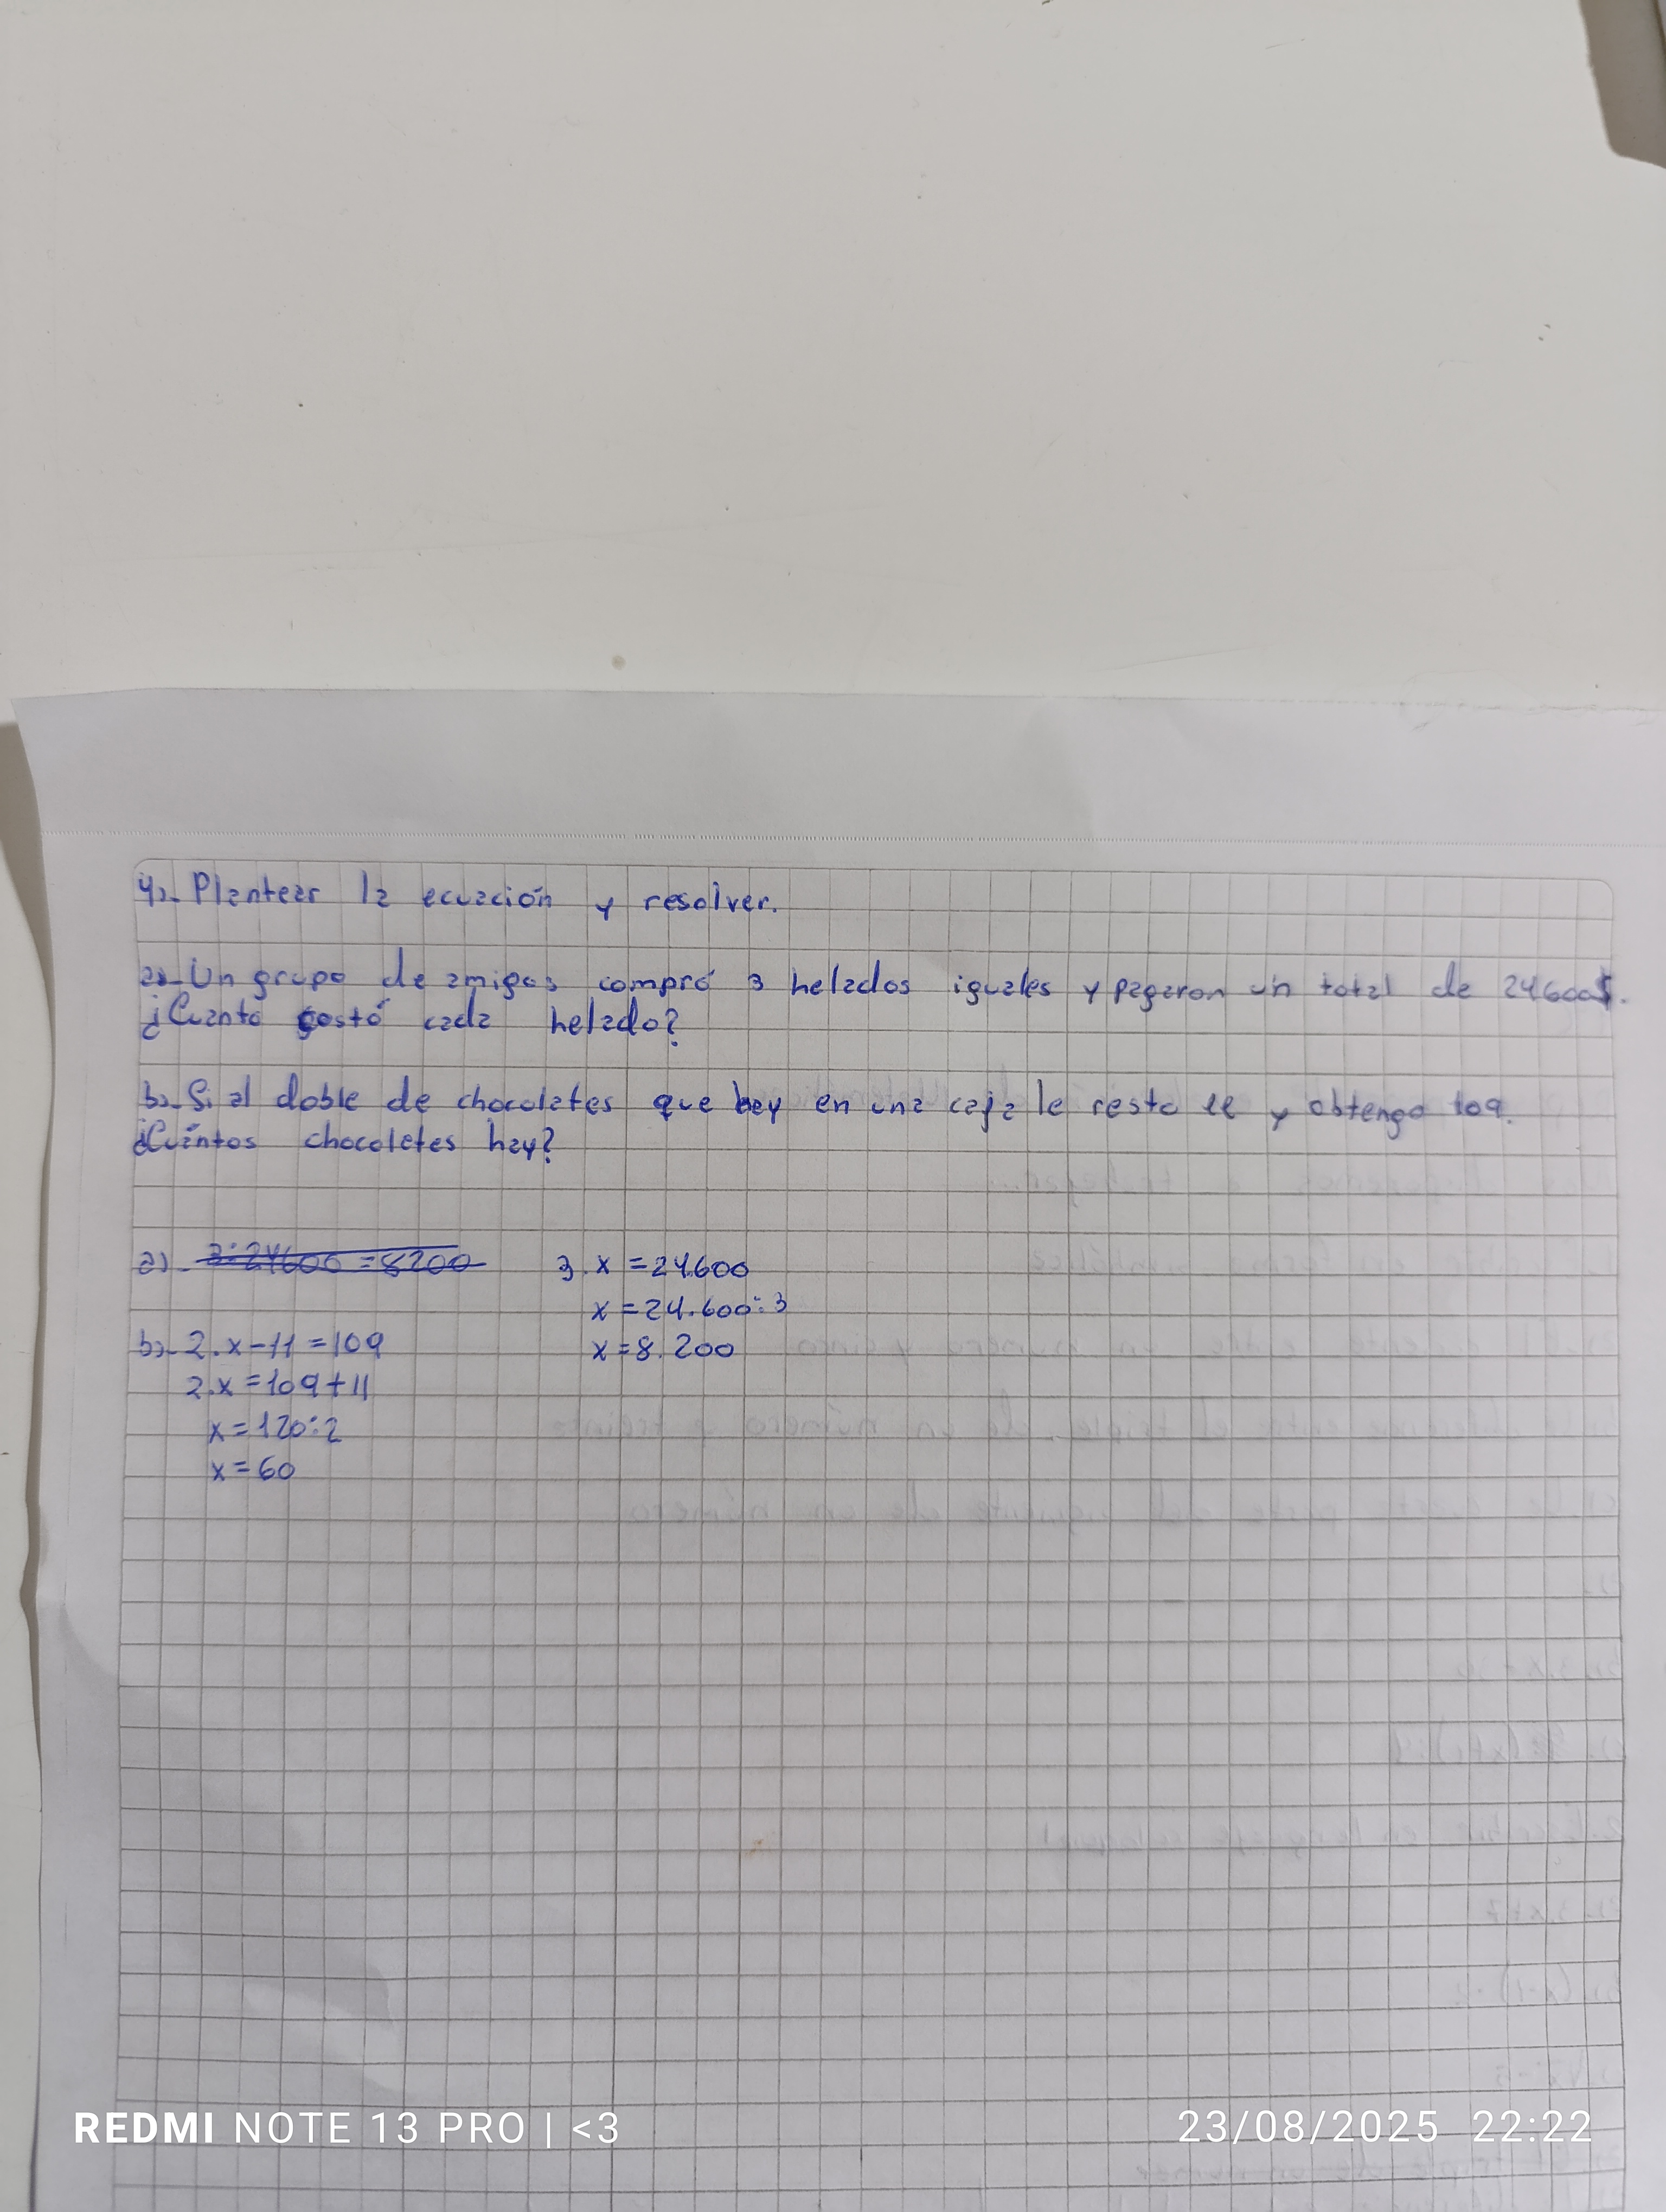 4)- Plantear la ecuación y resolver.
a)- Un grupo de amigos compró 3 helados iguales y pagaron un total de 24600$.
¿Cuanto costó cada helado?
b)- Si al doble de chocolates que hay en una caja le resto 11 y obtengo 109.
¿Cuántos chocolates hay?
a)- 3:24600 = 8200
3.x = 24.600
x = 24.600:3
x = 8.200
b)- 2.x-11 = 109
2.x = 109+11
x = 120:2
x = 60
REDMI NOTE 13 PRO | <3
23/08/2025 22:22